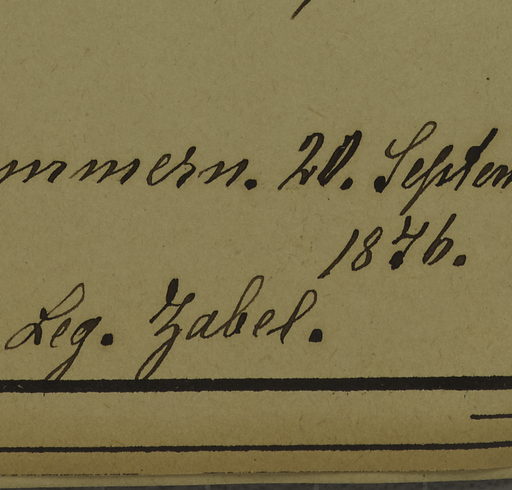 mmern. 20. Septem
1876.
Leg. Zabel.